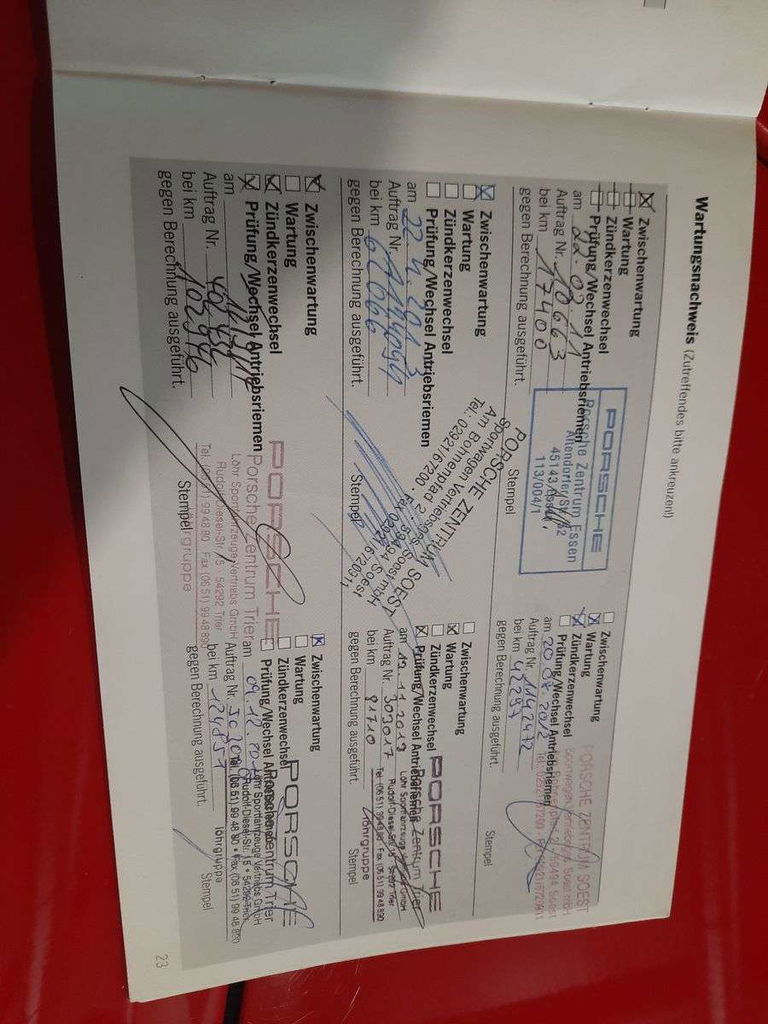 Wartungsnachweis (Zutreffendes bitte ankreuzen!)
Zwischenwartung
Wartung
Zündkerzenwechsel
Prüfung/Wechsel Antriebsriemen
am 22.02.11
Auftrag Nr. 10663
bei km 17400
gegen Berechnung ausgeführt.
PORSCHE
Porsche Zentrum Essen
Altendorfer Str.
45143 Essen
113/004/1
Stempel
Zwischenwartung
Wartung
Zündkerzenwechsel
Prüfung/Wechsel Antriebsriemen
am
Auftrag Nr. 1142472
bei km 42297
gegen Berechnung ausgeführt.
PORSCHE ZENTRUM SOEST
Stempel
Zwischenwartung
Wartung
Zündkerzenwechsel
Prüfung/Wechsel Antriebsriemen
am 22.4.2013
Auftrag Nr.
bei km 62066
gegen Berechnung ausgeführt.
PORSCHE ZENTRUM SOEST
Sportwagen Vertriebsges. Soest mbH
Am Bohnenpfad 2
Tel.: 02921/6720
Stempel
Zwischenwartung
Wartung
Zündkerzenwechsel
Prüfung/Wechsel Antriebsriemen
am
Auftrag Nr. 303017
bei km 81710
gegen Berechnung ausgeführt.
PORSCHE
Porsche Zentrum Trier
Löhr Sportfahrzeuge GmbH
Rudolf-Diesel-Str.
Tel. (06 51) 99 48 80 · Fax (06 51) 99 48 890
löhrgruppe
Stempel
Zwischenwartung
Wartung
Zündkerzenwechsel
Prüfung/Wechsel Antriebsriemen
am
Auftrag Nr.
bei km 102946
gegen Berechnung ausgeführt.
PORSCHE
Porsche Zentrum Trier
Löhr Sportfahrzeuge Vertriebs GmbH
Rudolf-Diesel-Str. 15 · 54292 Trier
Tel. (06 51) 99 48 80 Fax (06 51) 99 48 890
löhrgruppe
Stempel
Zwischenwartung
Wartung
Zündkerzenwechsel
Prüfung/Wechsel Antriebsriemen
am
Auftrag Nr.
bei km 124857
gegen Berechnung ausgeführt.
PORSCHE
Porsche Zentrum Trier
Löhr Sportfahrzeuge Vertriebs GmbH
Rudolf-Diesel-Str. 15 • 54292 Trier
Tel. (06 51) 99 48 80 • Fax (06 51) 99 48 890
löhrgruppe
Stempel
23